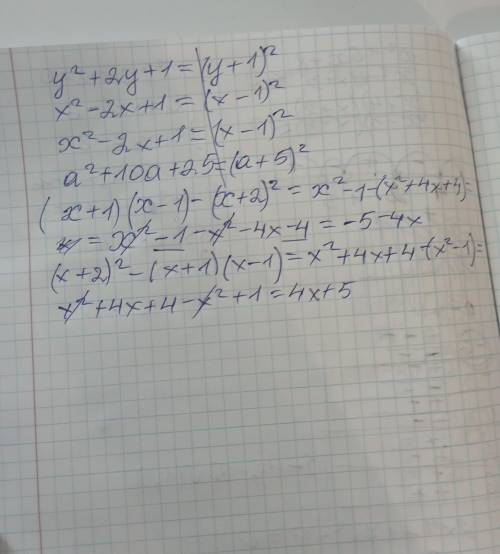 y² + 2y + 1 = (y + 1)²
x² - 2x + 1 = (x - 1)²
x² - 2x + 1 = (x - 1)²
a² + 10a + 25 = (a + 5)²
(x + 1)(x - 1) - (x + 2)² = x² - 1 - (x² + 4x + 4) =
= x² - 1 - x² - 4x - 4 = -5 - 4x
(x + 2)² - (x + 1)(x - 1) = x² + 4x + 4 - (x² - 1) =
x² + 4x + 4 - x² + 1 = 4x + 5